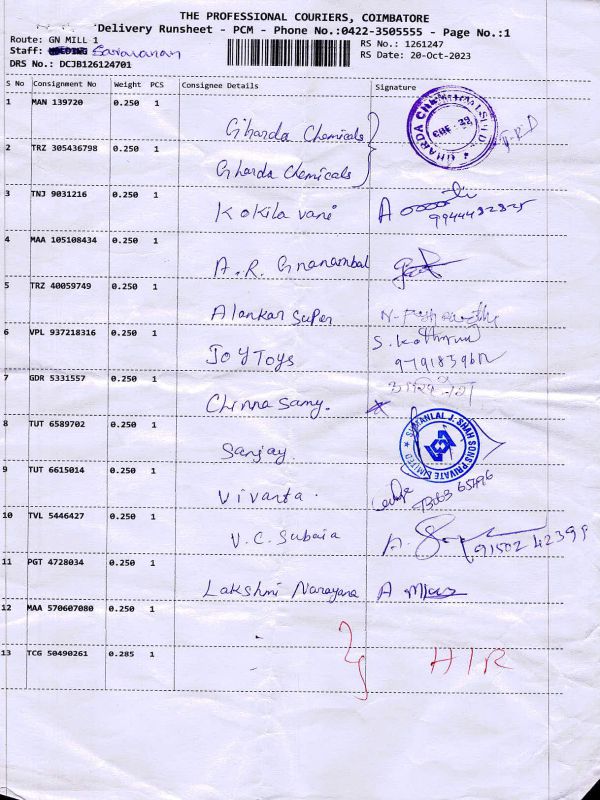 THE PROFESSIONAL COURIERS, COIMBATORE
Delivery Runsheet - PCM - Phone No.:0422-3505555 - Page No.:1
Route: GN MILL 1
RS No.: 1261247
Staff: Saravanan
RS Date: 20-Oct-2023
DRS No.: DCJB126124701
S No Consignment No Weight PCS Consignee Details Signature
1 MAN 139720 0.250 1 Gharda Chemicals
2 TRZ 305436798 0.250 1 Gharda Chemicals
3 TNJ 9031216 0.250 1 Kokila vani
4 MAA 105108434 0.250 1 A.R. Gnanambal
5 TRZ 40059749 0.250 1 Alankar Super
6 VPL 937218316 0.250 1 JOY TOYS S.
7 GDR 5331557 0.250 1 Chinna Samy.
8 TUT 6589702 0.250 1 Sanjay
SHAH SONS PRIVATE LIMITED
9 TUT 6615014 0.250 1 Vivanta.
10 TVL 5446427 0.250 1 V.C. Subaia 91502 42399
11 PGT 4728034 0.250 1 Lakshmi Narayana
12 MAA 570607080 0.250 1 -
13 TCG 50490261 0.285 1 - HIR